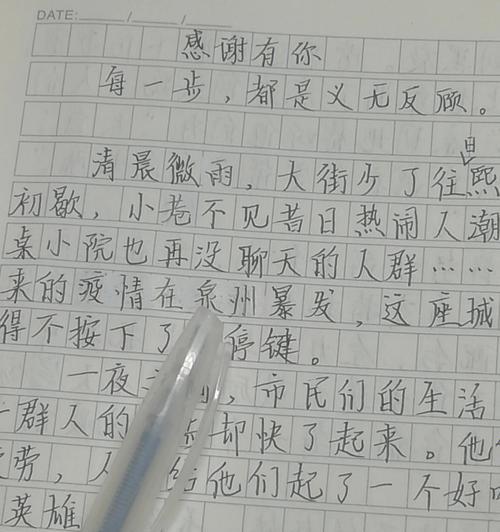 DATE: / /
感谢有你
每一步，都是义无反顾。
日
清晨微雨，大街少了往熙
初歇，小巷不见昔日热闹人潮
桌小院也再没聊天的人群……
来的疫情在泉州暴发，这座城
得不按下了 停键。
一夜 ，市民们的生活
群人的 却快了起来。他
劳， 他们起了一个好
英雄